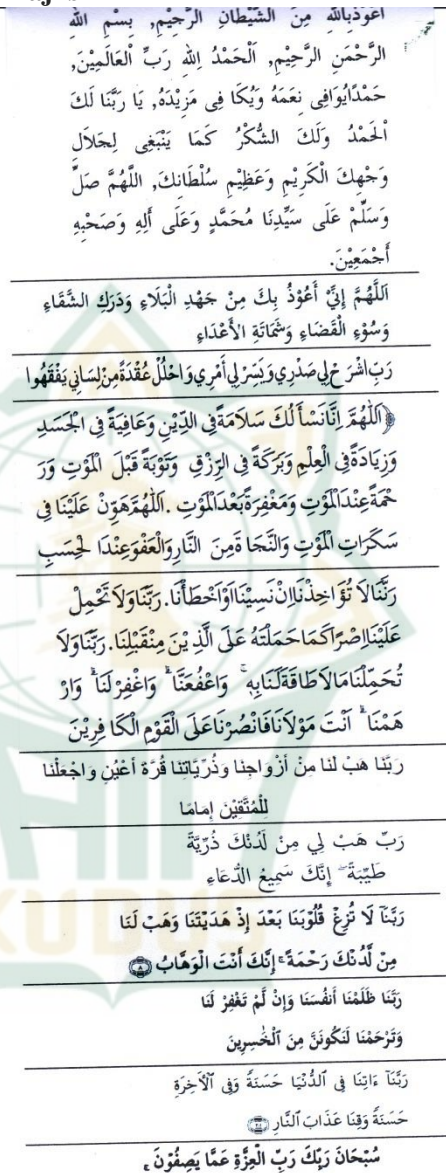 اعوذبالله مِنَ الشَّيْطَانِ الرَّحِيْمِ, بِسْمِ اللهِ
الرَّحْمَنِ الرَّحِيْمِ, اَلْحَمْدُ لِلهِ رَبِّ الْعَالَمِيْنَ,
حَمْدًايُوَافِى نِعَمَهُ وَيُكَا فِى مَزِيْدَهُ, يَا رَبَّنَا لَكَ
الْحَمْدُ وَلَكَ الشُّكْرُ كَمَا يَنْبَغِى لِجَلاَلِ
وَجْهِكَ الْكَرِيْمِ وَعَظِيْمِ سُلْطَانِكَ, اللَّهُمَّ صَلِّ
وَسَلِّمْ عَلَى سَيِّدِنَا مُحَمَّدٍ وَعَلَى أَلِهِ وَصَحْبِهِ
أَجْمَعِيْنَ.
اَللَّهُمَّ إِنِّيْ أَعُوْذُ بِكَ مِنْ جَهْدِ الْبَلَاءِ وَدَرَكِ الشَّقَاءِ
وَسُوْءِ الْقَضَاءِ وَشَمَاتَةِ الأَعْدَاءِ
رَبِّ اشْرَحْ لِي صَدْرِي وَيَسِّرْ لِي أَمْرِي وَاحْلُلْ عُقْدَةً مِنْ لِسَانِي يَفْقَهُوا
اَللّٰهُمَّ اِنَّانَسْأَلُكَ سَلاَمَةً فِى الدِّيْنِ وَعَافِيَةً فِى الْجَسَدِ
وَزِيَادَةً فِى الْعِلْمِ وَبَرَكَةً فِى الرِّزْقِ وَتَوْبَةً قَبْلَ الْمَوْتِ وَرَ
حْمَةً عِنْدَالْمَوْتِ وَمَغْفِرَةً بَعْدَالْمَوْتِ. اَللّٰهُمَّ هَوِّنْ عَلَيْنَا فِى
سَكَرَاتِ الْمَوْتِ وَالنَّجَا ةَمِنَ النَّارِ وَالْعَفْوَعِنْدَا لْحِسَبِ
رَبَّنَالَا تُؤَاخِذْنَااِنْ نَسِيْنَااَوْاَخْطَأْنَا. رَبَّنَاوَلاَ تَحْمِلْ
عَلَيْنَااِصْرًاكَمَاحَمَلْتَهُ عَلَى الَّذِيْنَ مِنْقَبْلِنَا. رَبَّنَاوَلاَ
تُحَمِّلْنَامَالاَطَاقَةَلَنَابِهِ ۚ وَاعْفُعَنَّا ۗ وَاغْفِرْلَنَا ۗ وَارْ
هَمْنَا ۗ اَنْتَ مَوْلَانَافَانْصُرْنَاعَلَى الْقَوْمِ الْكَا فِرِيْنَ
رَبَّنَا هَبْ لَنَا مِنْ أَزْوَاجِنَا وَذُرِّيَّاتِنَا قُرَّةَ أَعْيُنٍ وَاجْعَلْنَا
لِلْمُتَّقِيْنَ إِمَامَا
رَبِّ هَبْ لِي مِنْ لَدُنْكَ ذُرِّيَّةً
طَيِّبَةً ۖ إِنَّكَ سَمِيعُ الدُّعَاءِ
رَبَّنَآ لَا تُزِغْ قُلُوْبَنَا بَعْدَ إِذْ هَدَيْتَنَا وَهَبْ لَنَا
مِنْ لَّدُنْكَ رَحْمَةً ۚ إِنَّكَ أَنْتَ الْوَهَّابُ ۝٨
رَبَّنَا ظَلَمْنَا أَنفُسَنَا وَإِنْ لَّمْ تَغْفِرْ لَنَا
وَتَرْحَمْنَا لَنَكُونَنَّ مِنَ ٱلْخَٰسِرِينَ
رَبَّنَآ ءَاتِنَا فِى ٱلدُّنْيَا حَسَنَةً وَفِى ٱلْأَخِرَةِ
حَسَنَةً وَقِنَا عَذَابَ ٱلنَّارِ
سُبْحَانَ رَبِّكَ رَبِّ الْعِزَّةِ عَمَّا يَصِفُوْنَ،